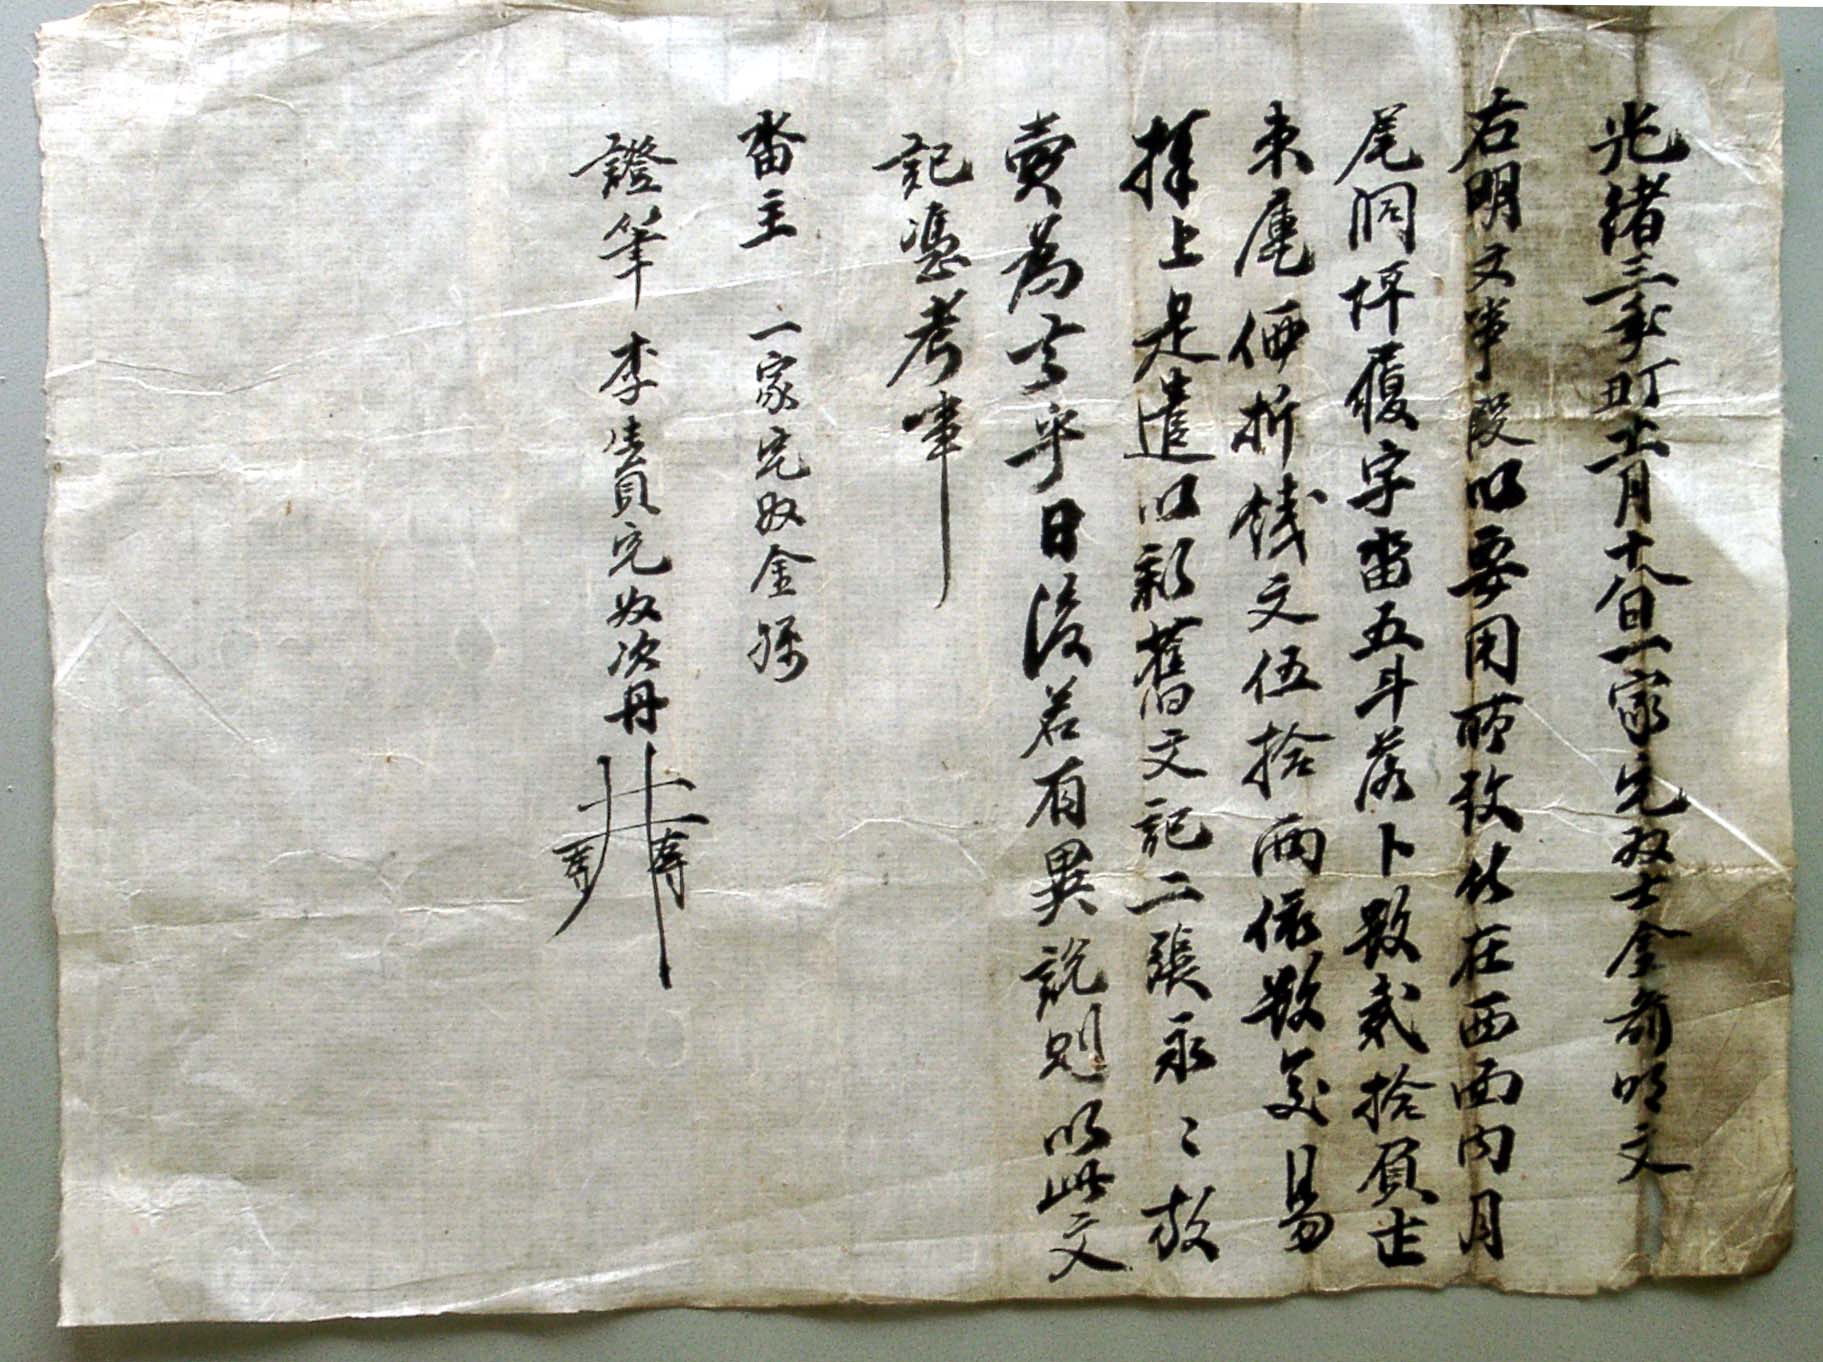 光緒三年丁丑十一月十八日一家宅奴士金前明文
右明文事段以要用所致伏在西面內月
尾洞坪履字畓五斗落卜數貳拾負㐣
東庫価折錢文伍拾兩依數交易
捧上是遣以新舊文記二張永〻放
賣爲去乎日後若有異說則以此文
記憑考事
畓主 一家宅奴金
證筆 李生員宅奴次丹